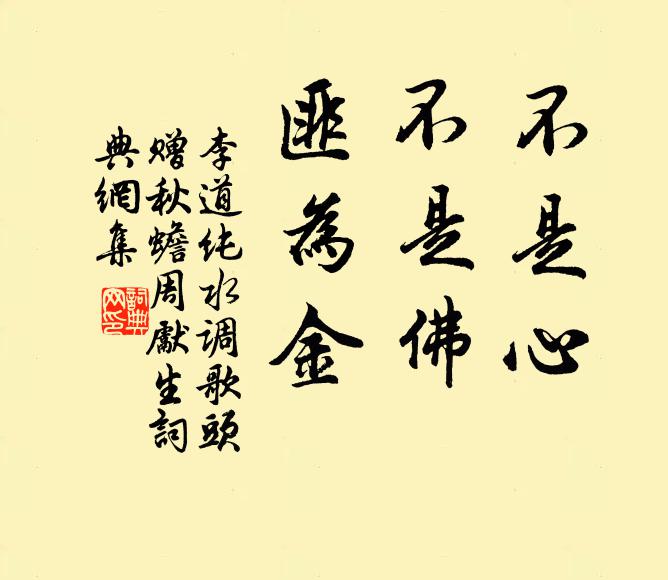 不是心
不是佛
匪為金
李道纯水调歌頭
赠秋蟾周獻生詞
典網集
詞典
网印